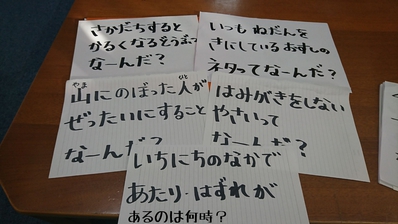 さかだちすると
かるくなるぞうぶつ
なーんだ?
いつも ねだんを
きにしている おすしの
ネタってなーんだ?
やま ひと
山にのぼった人が
ぜったいにすること
なーんだ?
はみがきをしない
やさいって
なーんだ?
いちにちのなかで
あたり・はずれが
あるのは何時?